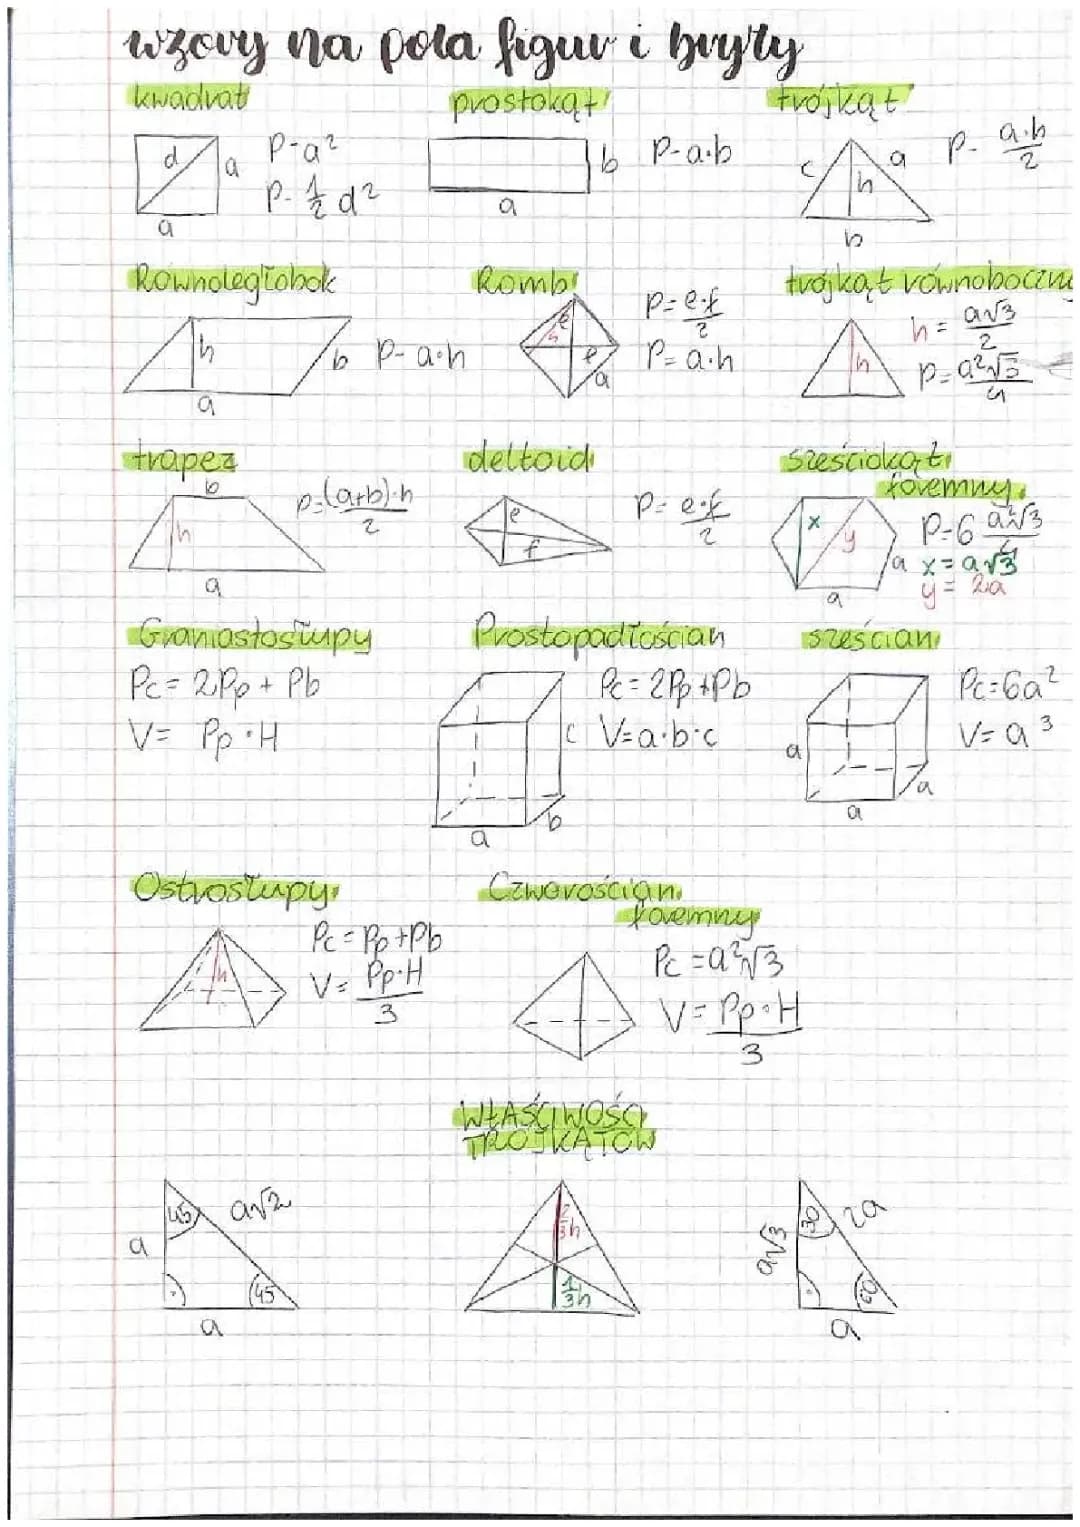 wzory na pola figur i bryły
kwadrat
d
a
a
P-a²
P-½ d²
prostokąt
b
a
P-a·b
trójkąt
c
a
h
b
P- a·b/2
Równoległobok
h
b
a
P-a·h
Romb
e
e
a
P= e·f/2
P= a·h
trójkąt równoboczny
h
h= a√3/2
P= a²√3/4
trapez
b
h
a
P=(a+b)·h/2
deltoid
e
f
P= e·f/2
sześciokąt
foremny
x
y
a
a
P=6 a²√3/4
x= a√3
y= 2a
Graniastosłupy
Pc= 2Pp + Pb
V= Pp·H
Prostopadłościan
c
b
a
Pc= 2Pp+Pb
V=a·b·c
sześcian
a
a
a
Pc=6a²
V= a³
Ostrosłupy
h
Pc=Pp+Pb
V= Pp·H/3
Czworościan
foremny
Pc=a²√3
V= Pp·H/3
WŁAŚCIWOŚCI
TRÓJKĄTÓW
45
a√2
a
45
a
2/3h
1/3h
30
2a
a√3
60
a